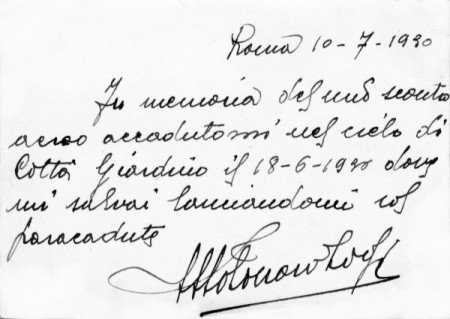 Roma 10-7-1930
In memoria del mio scontro
aereo accadutomi nel cielo di
Città Giardino il 18-6-1930 dove
mi salvai lanciandomi col
paracadute